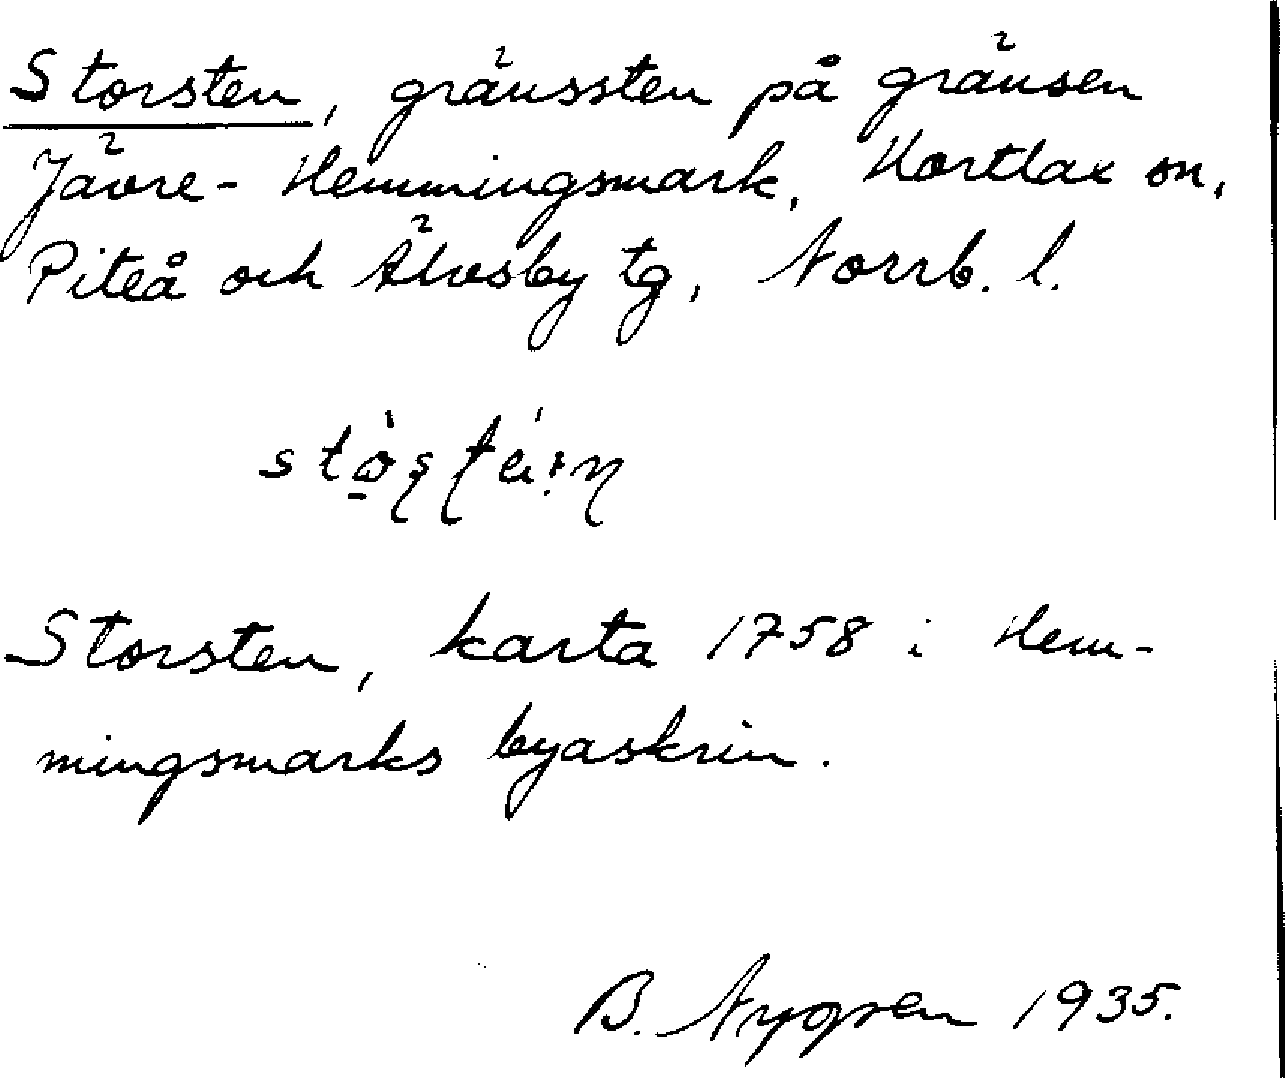 Storsten, gränssten på gränsen
Jävre- Hemmingsmark, Hortlax sn,
Piteå och Älvsby tg, Norrb. l.
Storsten, karta 1758 i Hem-
mingsmarks byaskrin.
B. Nygren 1935.